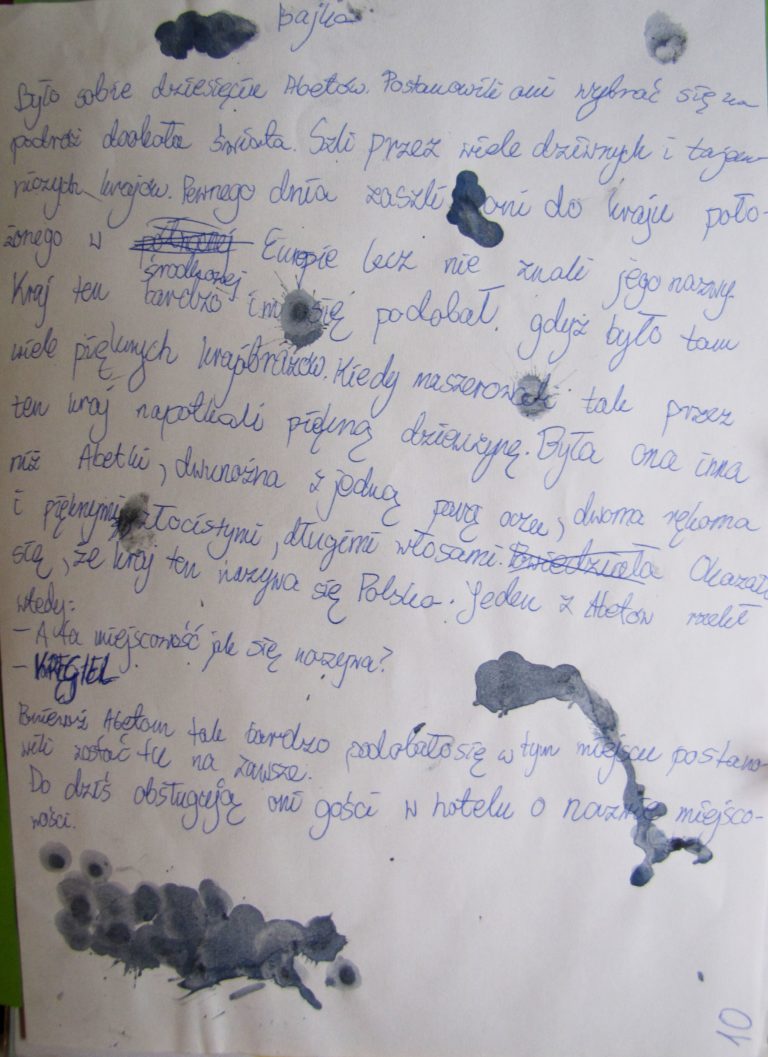 Bajka
Było sobie dziesięciu Abetów. Postanowili oni wybrać się na
podróż dookoła świata. Szli przez wiele dziwnych i tajem-
niczych krajów. Pewnego dnia zaszli oni do kraju poło-
żonego w północnej Europie lecz nie znali jego nazwy.
środkowej
Kraj ten bardzo im się podobał gdyż było tam
wiele pięknych krajobrazów. Kiedy maszerowali tak przez
ten kraj napotkali piękną dziewczynę. Była ona inna
niż Abetki, dwunożna z jedną parą oczu, dwoma rękoma
i pięknymi złocistymi, długimi włosami. Powiedziała Okazało
się, że kraj ten nazywa się Polska. Jeden z Abetów rzekł
wtedy:
- A ta miejscowość jak się nazywa?
- KRĘGIEL
Ponieważ Abetom tak bardzo podobało się w tym miejscu postano-
wili zostać tu na zawsze.
Do dziś obsługują oni gości w hotelu o nazwie miejsco-
wości.
10